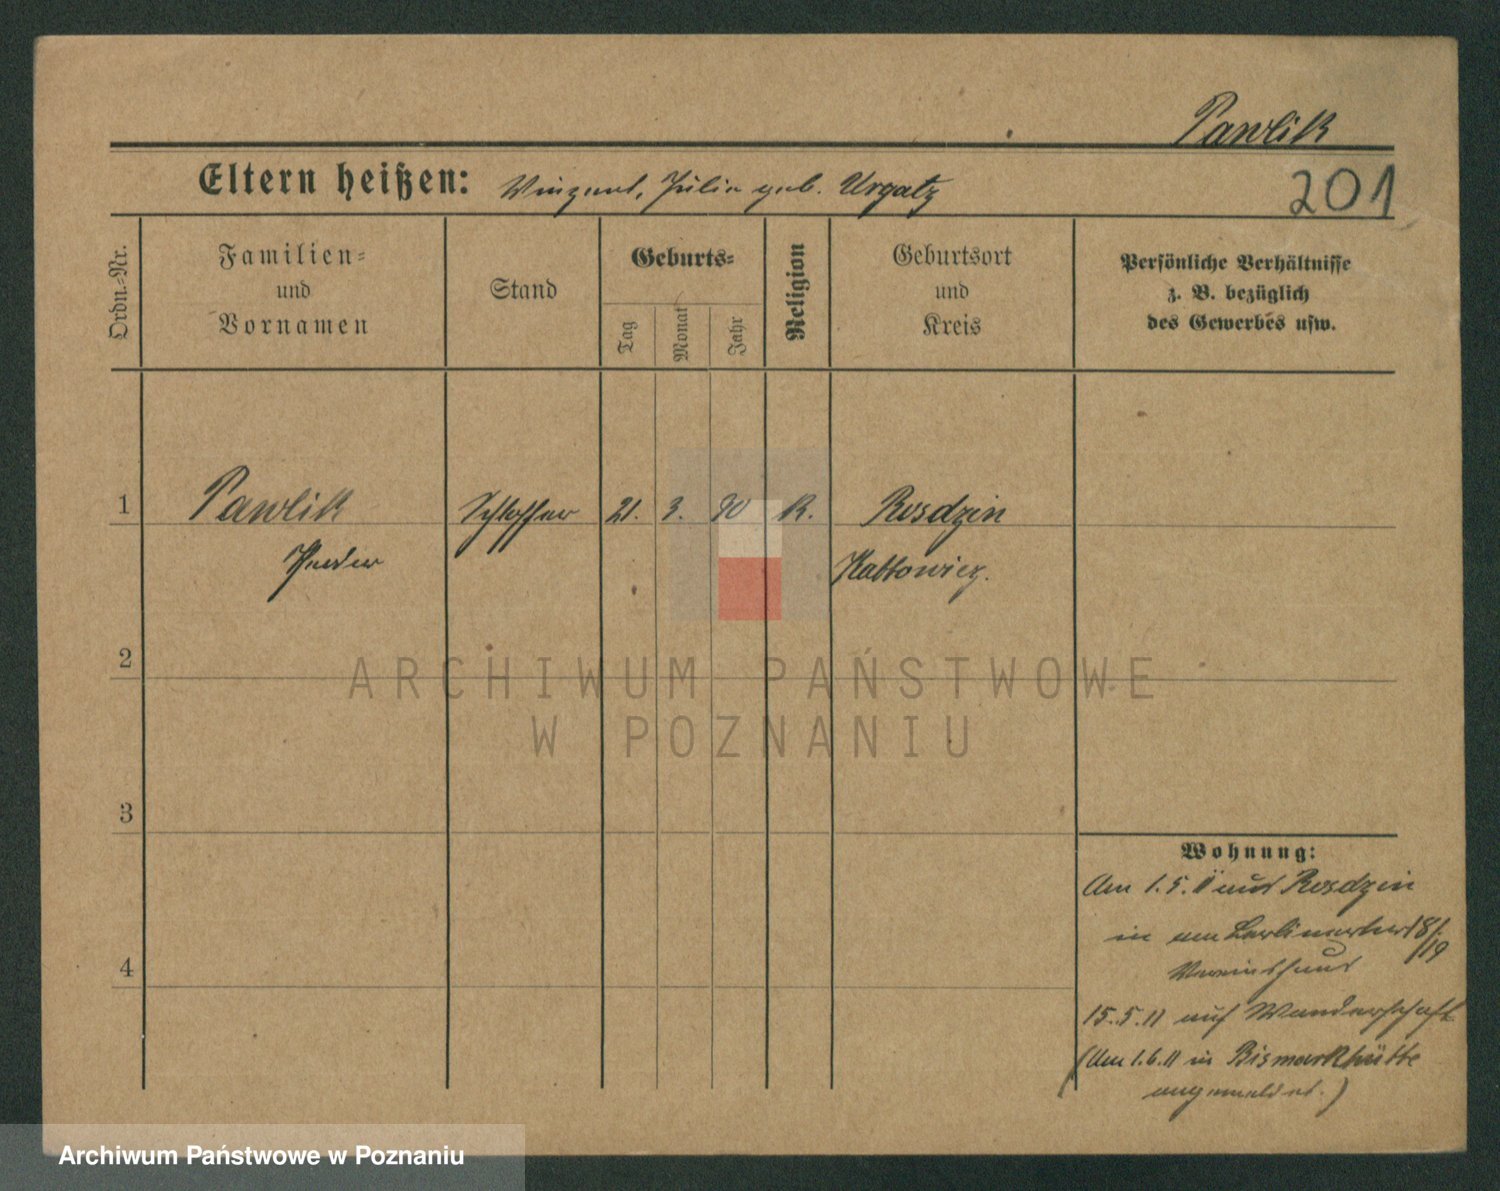 Pawlik
Eltern heißen: Vinzent, Julia geb. Urgatz
201
Ordn.-Nr.
Familien-
und
Vornamen
Stand
Geburts-
Tag
Monat
Jahr
Religion
Geburtsort
und
Kreis
Persönliche Verhältnisse
z. B. bezüglich
des Gewerbes usw.
1 Pawlik Schlosser 21. 3. 90 K. Rosdzin
Kattowicz.
2
ARCHIWUM PAŃSTWOWE
W POZNANIU
3
Wohnung:
Am 1.5.11 aus Rosdzin
in 18/19
Vereinshaus
4
15.5.11 auf Wanderschaft
(Am 1.6.11 in Bismarkhütte
angemeldet.)
Archiwum Państwowe w Poznaniu